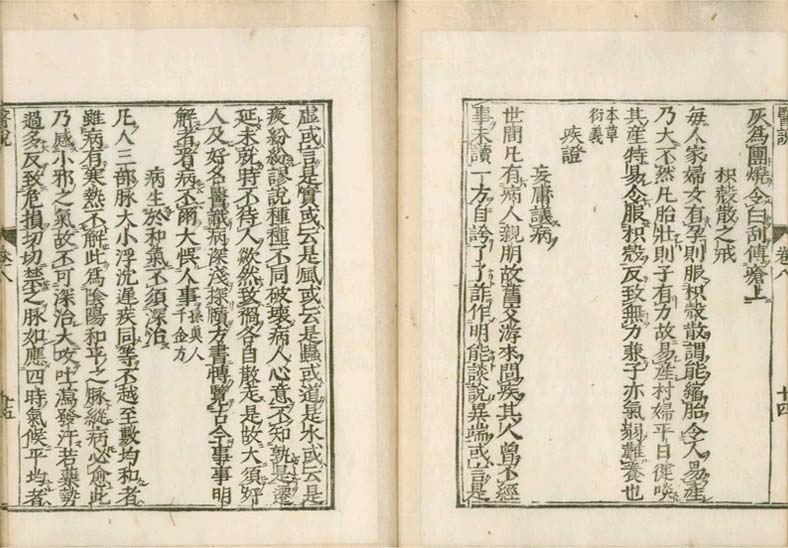 醫說
卷八
十四
灰為團燒令白刮傅瘡上
枳殼散之戒
每人家婦女有孕則服枳殼散謂能縮胎令人易產
乃大不然凡胎壯則子有力故易產村婦平日健啖
其產特易令服枳殼反致無力兼子亦氣弱難養也
本草
衍義
疾證
妄庸議病
世間凡有病人親朋故舊交游來問疾其人曾不經
事未讀一方自誇了了詐作明能談說異端或言是
虛或言是實或云是風或云是蟲或道是水或云是
痰紛紛謬說種種不同破壞病人心意不知孰是遷
延未就時不待人欻然致禍各自散走是故大須好
人及好名醫識病深淺探賾方書博覽古今事事明
解者看病不爾大悞人事
孫真人
千金方
病生於和氣不須深治
凡人三部脉大小浮沈遲疾同等不越至數均和者
雖病有寒熱不解此為陰陽和平之脉縱病必愈此
乃感小邪之氣故不可深治大攻吐瀉發汗若藥勢
過多反致危損切切禁之脉如應四時氣候平均者
醫說
卷八
十五